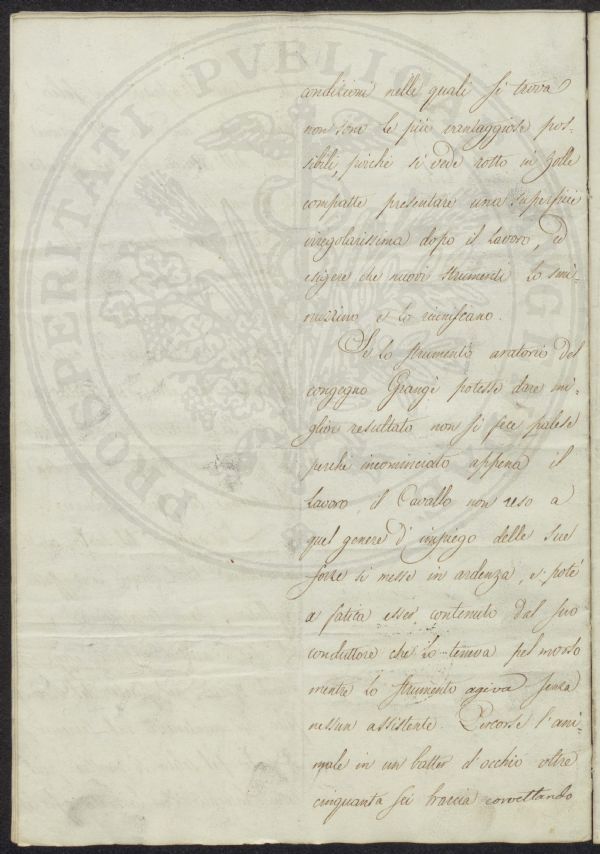 PROSPERITATI PVBLICAE AVGENDAE
condizioni nelle quali si trova
non sono le più vantaggiose pos-
sibili, poichè si vede rotto in zolle
compatte presentare una superficie
irregolarissima dopo il lavoro, ed
esigere che nuovi strumenti lo smi-
nuzzino e lo riunificano.
Se lo strumento aratorio del
congegno Grangé potesse dare mi-
glior resultato non si fece palese
perchè incominciato appena il
lavoro, il Cavallo non reso a
quel genere d'impiego delle sue
forze si messe in ardenza, e potè
a fatica esser contenuto dal suo
conduttore che lo teneva pel morso
mentre lo strumento agiva senza
nessun assistente. Percorse l'ani-
male in un batter d'occhio oltre
cinquanta sei braccia corvettando